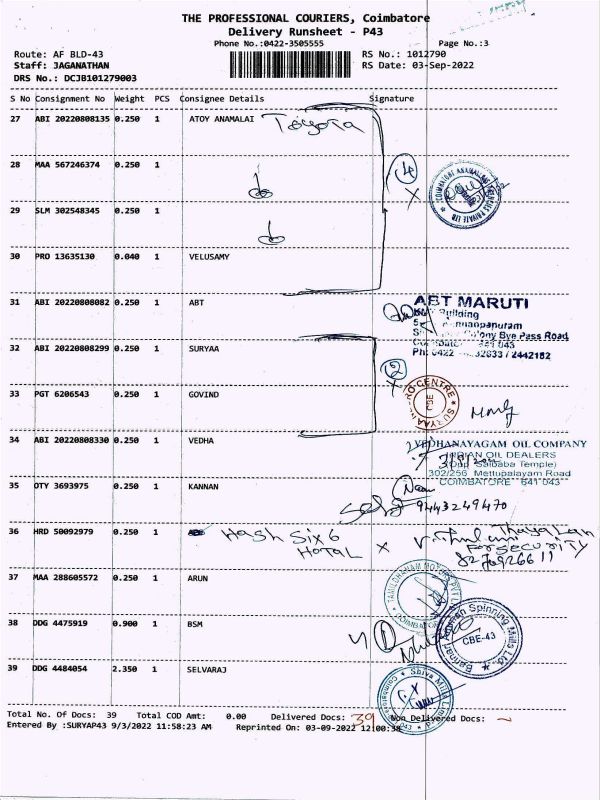 THE PROFESSIONAL COURIERS, Coimbatore
Delivery Runsheet - P43
Phone No.:0422-3505555
Page No.:3
Route: AF BLD-43
RS No.: 1012790
Staff: JAGANATHAN
RS Date: 03-Sep-2022
DRS No.: DCJB101279003
S No Consignment No Weight PCS Consignee Details Signature
27 ABI 20220808135 0.250 1 ATOY ANAMALAI Toyota
28 MAA 567246374 0.250 1
4
29 SLM 302548345 0.250 1
30 PRO 13635130 0.040 1 VELUSAMY
31 ABI 20220808082 0.250 1 ABT
ABT MARUTI
Building
Bye Pass Road
641 043
2442162
32 ABI 20220808299 0.250 1 SURYAA
2
33 PGT 6206543 0.250 1 GOVIND
34 ABI 20220808330 0.250 1 VEDHA
VEDHANAYAGAM OIL COMPANY
INDIAN OIL DEALERS
(Opp. Saibaba Temple)
302/256, Mettupalayam Road
COIMBATORE 641 043
35 OTY 3693975 0.250 1 KANNAN
9443249470
36 HRD 50092979 0.250 1 Hash Six 6
HOTAL
SECURITY
37 MAA 288605572 0.250 1 ARUN
38 DDG 4475919 0.900 1 BSM
Spinning Mills Ltd.
CBE-43
39 DDG 4484054 2.350 1 SELVARAJ
Shiva Mills Limited
Total No. Of Docs: 39 Total COD Amt: 0.00 Delivered Docs: 39 Non Delivered Docs:
Entered By :SURYAP43 9/3/2022 11:58:23 AM Reprinted On: 03-09-2022 12:00:38